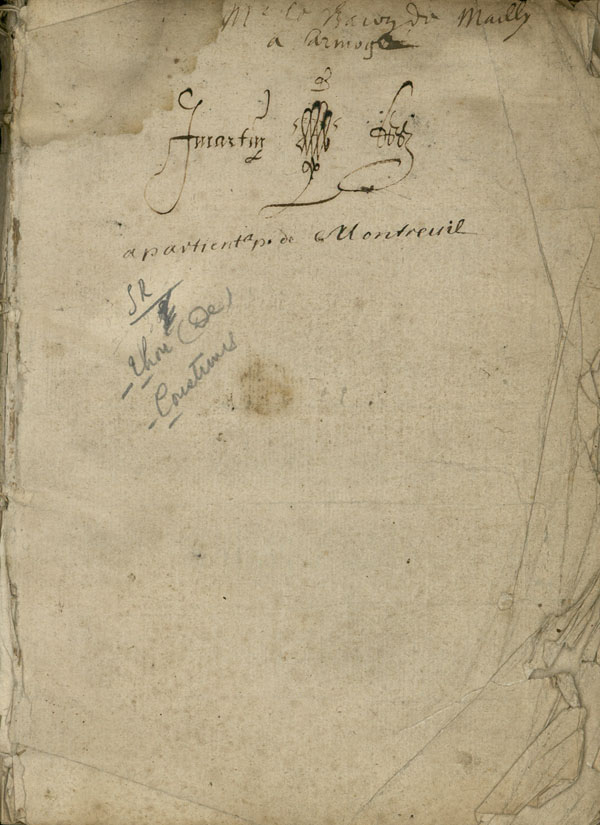 Mr le Baron de Mailly
a
Jmartin
apartient a p. de Montreuil
SR
Thou (De)
Coustumes